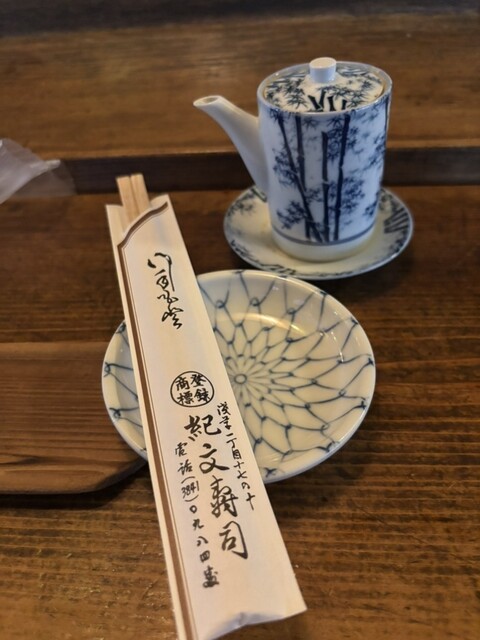 登録
商標
浅草一丁目十七の十
紀文壽司
電話(3841)〇九八四番